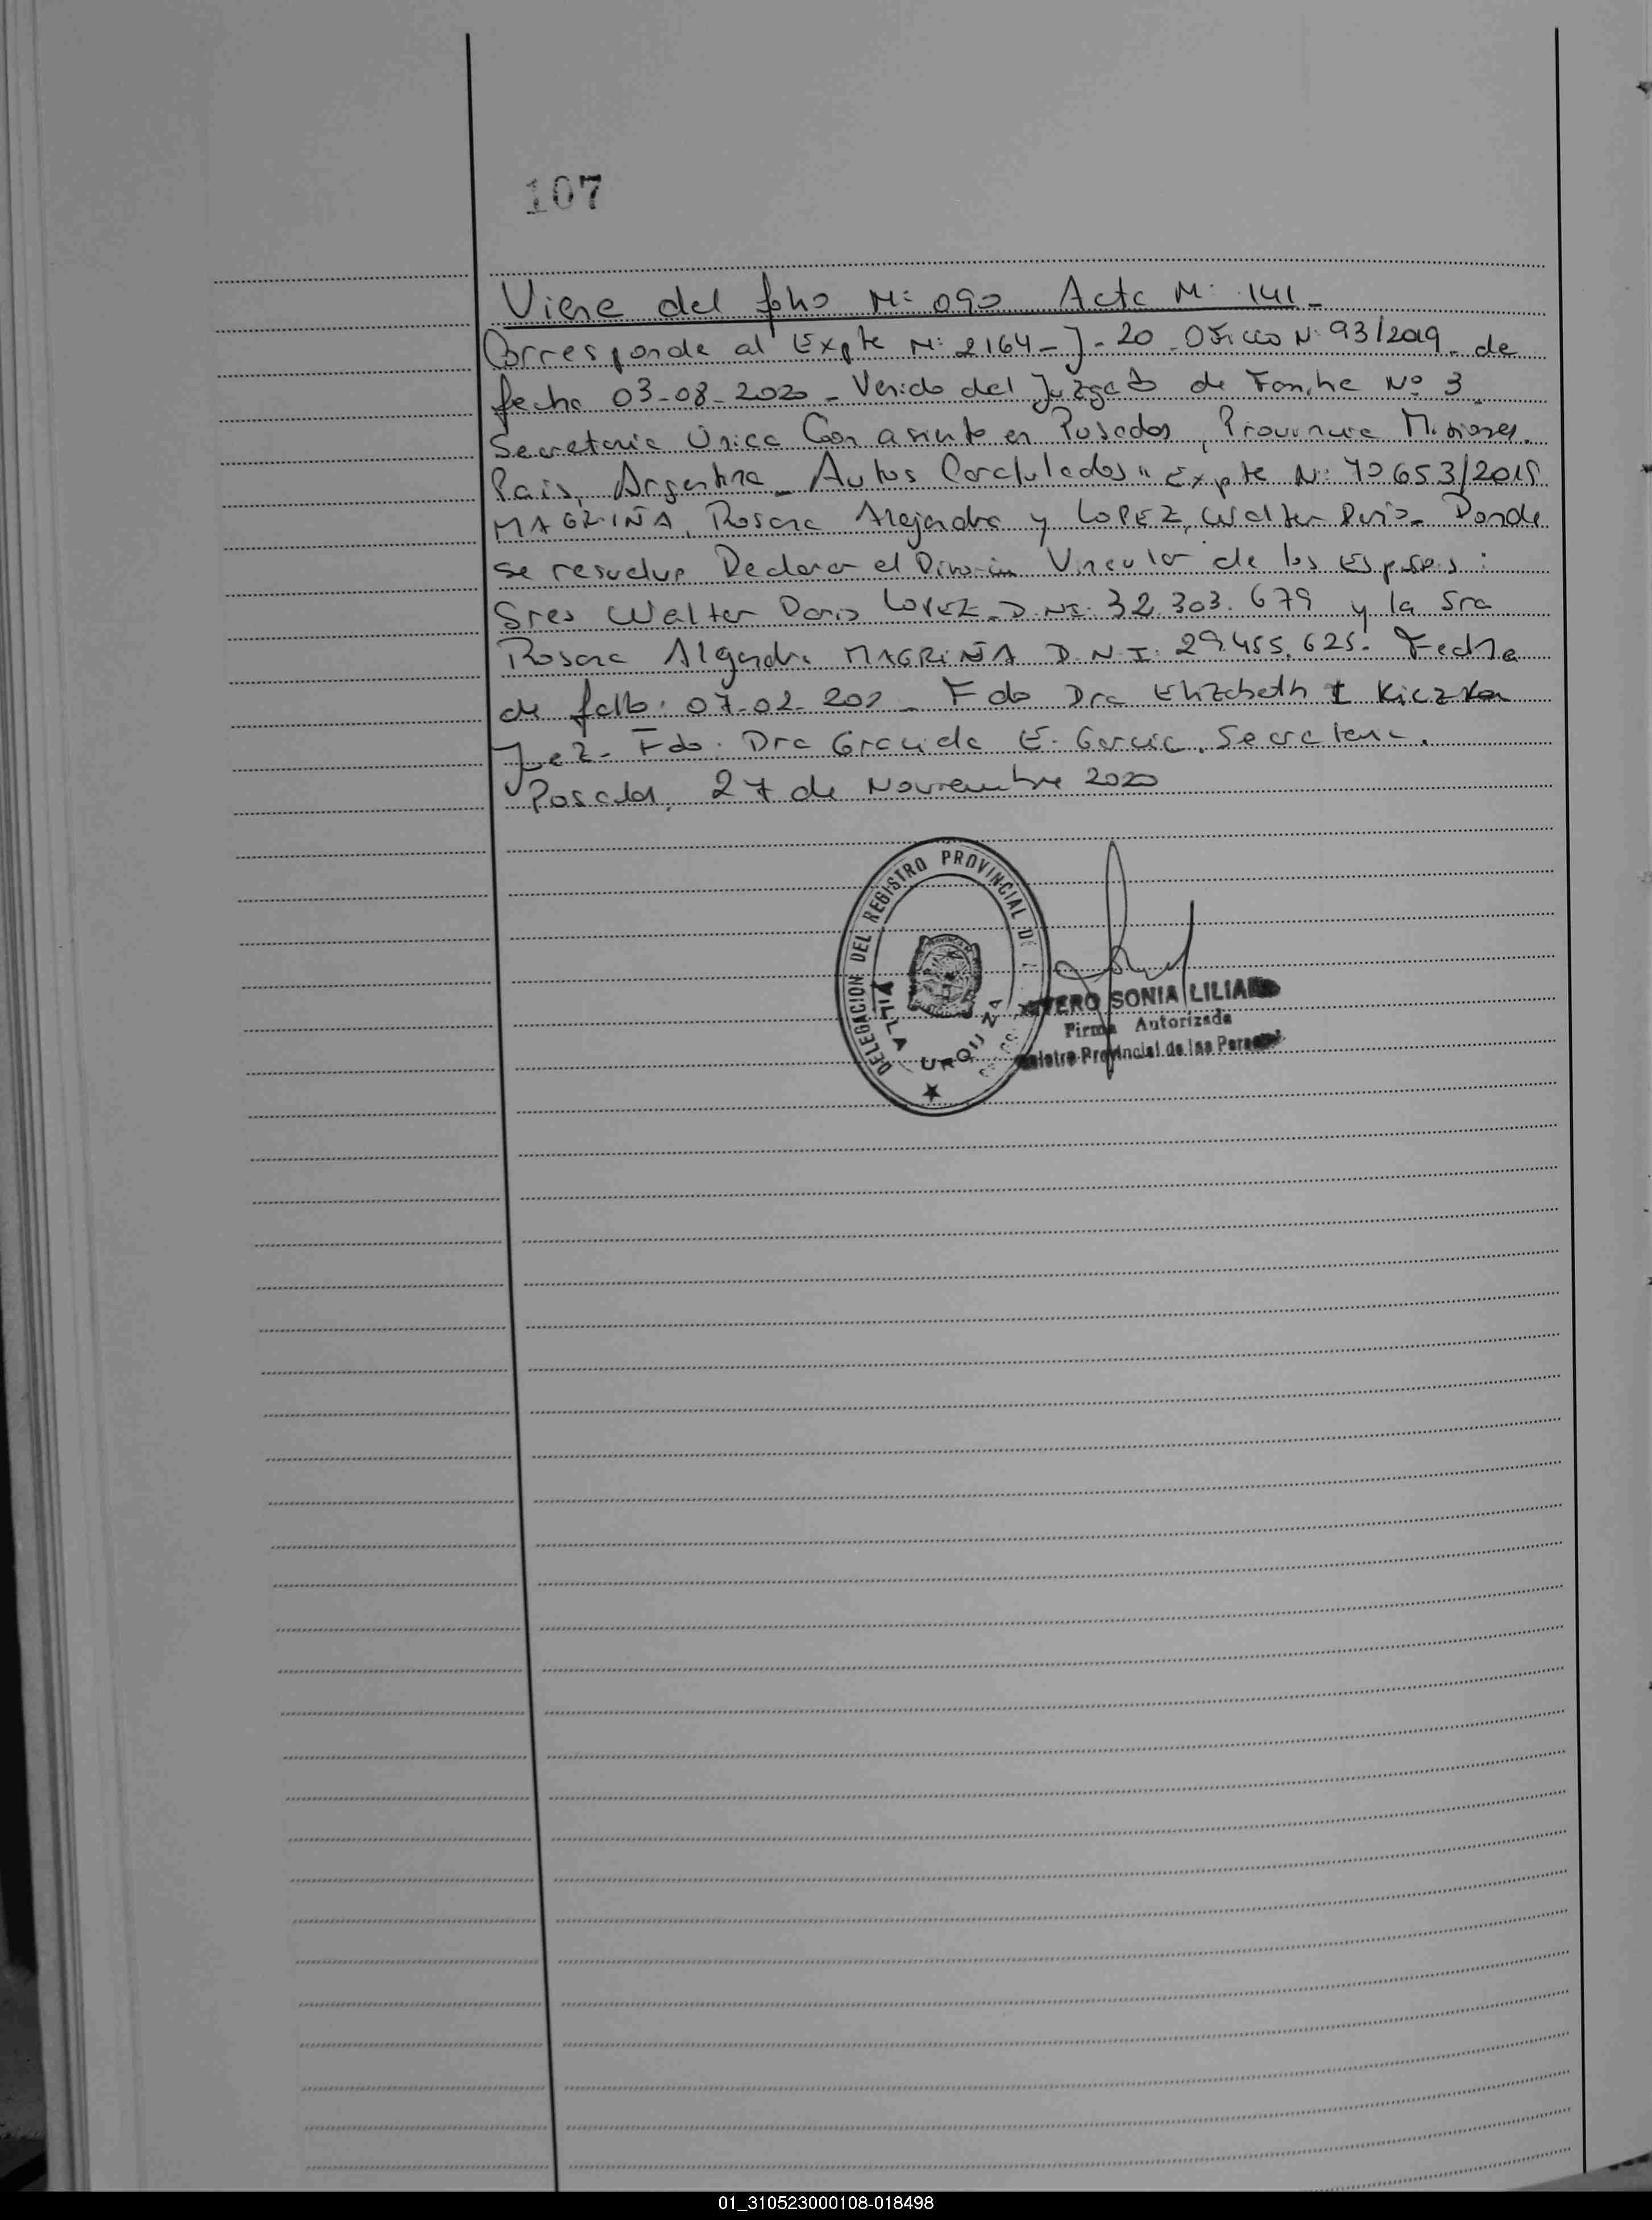 107
Viene del folio Nº: 090 Acta Nº: 141-
Corresponde al Expte Nº: 2164-J-20-Oficio Nº 93/2019- de
fecha 03-08-2020- Venido del Juzgado de Familia Nº 3
Secretaria Única Con asiento en Posadas, Provincia Misiones.
Pais, Argentina- Autos Caratulados "Expte Nº: /2015
MAGRIÑA, Rosana Alejandra y LOPEZ, Walter Dario- Donde
se resuelve Declarar el Divorcio Vincular de los Esposos:
Sres Walter Dario LOPEZ D.NI: 32.303.679 y la Sra
Rosana Alejandra MAGRIÑA D.N.I: 29.455.625. Fecha
de fallo: 07-02- - Fdo Dra Elizabeth I Kiczka
Juez- Fdo. Dra Graciela E. Garcia. Secretaria.
Posadas, 27 de Noviembre 2020
DELEGACION DEL REGISTRO PROVINCIAL DE
VILLA URQUIZA
SONIA LILIAN
Firma Autorizada
Provincial de las
01_310523000108-018498